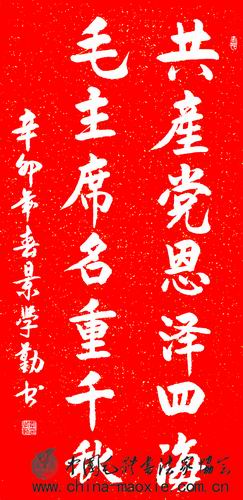 共產党恩泽四海
毛主席名重千秋
辛卯年春景学勤书
中国毛体书法家协会
www.china-maoxie.com.cn